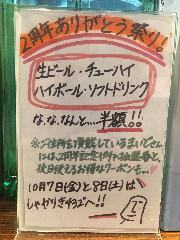 2周年ありがとう祭り!
生ビール・チューハイ
ハイボール・ソフトドリンク
な、な、なんと...半額!!
※ご住所を頂戴しているまいどさん
には2周年記念
後日使えるお得なクーポンも...
10月7日(金)と8日(土)は
しゃかりきへ!!